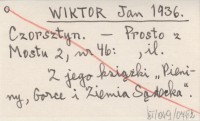 WIKTOR Jan 1936.
Czorsztyn. — Prosto z
Mostu 2, nr 46: , il.
Z jego książki „Pieni-
ny, Gorce i Ziemia Sądecka".